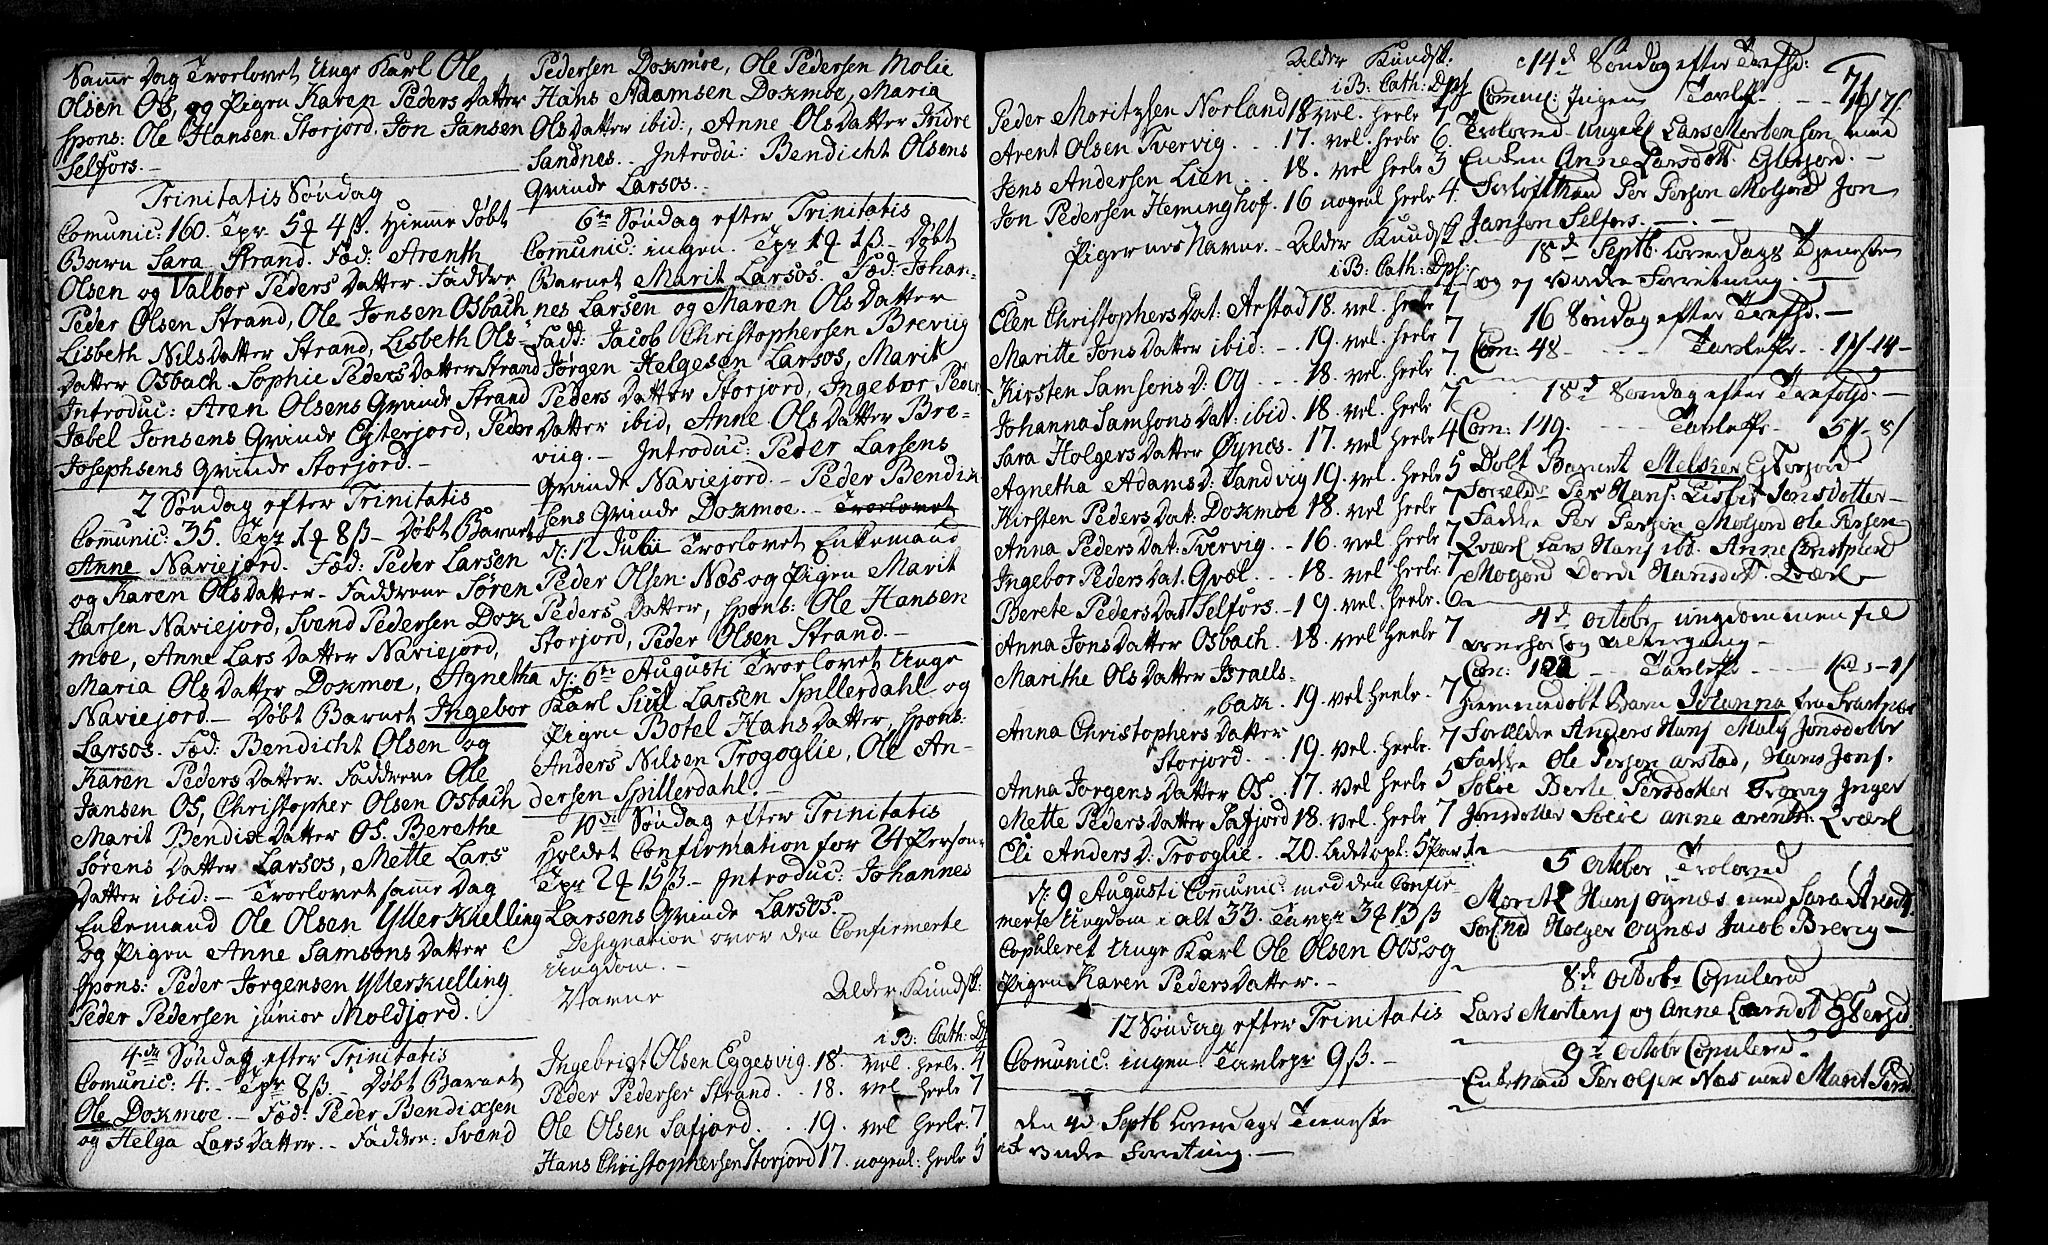 Samme Dag Troelovet Unge Karl Ole
Olsen Os, og Pigen Karen Peders Datter
spons: Ole Hansen Storjord, Jon Jansen
Selfors.
Trinitatis Søndag
Comunic: 160. Tpr. 5 4 ß. Hiemme Døbt
Barn Sara Strand. Fød: Arenth
Olsen og Valbor Peders Datter. Faddre
Peder Olsen Strand, Ole Jonsen Osbach
Lisbeth Nils Datter Strand, Lisbeth Ols-
Datter Osbach. Sophie Peders Datter Strand
Introduc: Aren Olsens Qvinde Strand
Jabel Jonsens Qvinde Egterjord, Peder
Josephsens Qvinde Storjord.
2 Søndag efter Trinitatis
Comunic: 35. Tpr 1 8 ß - Døbt Barnet
Anne Naviejord. Fød: Peder Larsen
og Karen Ols Datter - Faddrene Søren
Larsen Naviejord, Svend Pedersen Dox
moe, Anne Lars Datter Naviejord,
Maria Ols Datter Doxmoe, Agnetha
Naviejord - Døbt Barnet Ingebor
Larsos. Fød: Bendicht Olsen og
Karen Peders Datter. Faddrene Ole
Jansen Os, Christopher Olsen Osbach
Marit Bendix Datter Os. Berethe
Sørens Datter Larsos, Mette Lars
Datter ibid: - Troelovet samme Dag
Enkemand Ole Olsen Ytterkielling
og Pigen Anne Samsons Datter
spons: Peder Jørgensen Ytterkielling
Peder Pedersen junior Moldjord.
4de Søndag efter Trinitatis
Comunic: 4. Tpr 8 ß - Døbt Barnet
Ole Doxmoe. - Fød: Peder Bendixsen
og Helga Lars Datter. - Faddre: Svend
Pedersen Doxmoe, Ole Pedersen Molie
Hans Adamsen Doxmoe, Maria
Ols Datter ibid:, Anne Ols Datter Indre
Sandnes. - Introdu: Bendicht Olsens
Qvinde Larsos.
6te Søndag efter Trinitatis
Communic: ingen. Tpr 1 1 ß - Døbt
Barnet Marit Larsos. Fød: Johan-
nes Larsen og Maren Ols Datter
Fadd: Jacob Christophersen Breviig
Jørgen Helgesen Larsos, Marit
Peders Datter Storjord, Ingebor Peders
Datter ibid, Anne Ols Datter Bre-
viig. - Introduc: Peder Larsens
Qvinde Naviejord. - Peder Bendix
sens Qvinde Doxmoe. - Troelovet
d: 12 Julii Troelovet Enkemand
Peder Olsen Næs og Pigen Marit
Peders Datter, spons: Ole Hansen
Storjord, Peder Olsen Strand.
d: 6te Augusti Troelovet Unge
Karl Siul Larsen Spillerdahl og
Pigen Botel Hans Datter, spons:
Anders Nilsen Trogoglie, Ole An-
dersen Spillerdahl.
10de Søndag efter Trinitatis
Holdet Confirmation for 24 Person:
Tpr 2 15 ß - Introduc: Johannes
Larsens Qvinde Larsos.
Designation over den Confirmerte
Ungdom. -
Navne Alder Kundsk:
i B: Cath:
Ingebrigt Olsen Eggesvig. 18. vel. heele. 4
Peder Pederser Strand. 18. vel heele 7
Ole Olsen Safjord. 19. vel heele. 7
Hans Christophersen Storjord 17. nogenl: heele 5
Alder Kundsk:
i B: Cath: Dpf
Peder Moritzsen Norland 18 vel. heele 7
Arent Olsen Tvervig. 17. vel. heele 6.
Jens Andersen Lien 18. vel heele 3
Jon Pedersen Heminghof. 16 nogenl heele 4.
Pigernes Navne - Alder Kundsk
i B: Cath: Dpf:
Elen Christophers Dat: Arstad 18. vel. heele 7
Maritte Jons Datter ibid: - 19. vel. heele 7
Kirsten Samsons D: Og 18. vel. heele 7
Johanna Samsons Dat: ibid. 18. vel. heele 7
Sara Holgers Datter Øynæs. 17. vel. heele 4
Agnetha Adams D: Sandvig 19. vel. heele 5
Kirsten Peders Dat: Doxmoe 18. vel heele 7
Anna Peders Dat: Tvervig. - 16. vel. heele 7
Ingebor Peders Dat. Qvæl. 18. vel. heele 7
Berete Peders Dat Selfors. - 19. vel. heele. 6
Anna Jons Datter Osbach. 18. vel heele 7
Marithe Ols Datter Israels-
bak. 19. vel. heele. 7
Anna Christophers Datter
Storjord. 19. vel. heele. 7
Anna Jørgens Datter Os. 17. vel heele 5
Mette Peders Datter Safjord 18. vel. heele 7
Eli Anders D: Trooglie. 20.
d: 9 Augusti Comunic: med den Confir-
merte Ungdom i alt 33. Tavlpr 3 13 ß
Copuleret Unge Karl Ole Olsen Os og
Pigen Karen Peders Datter. -
12 Søndag efter Trinitatis
Comunic: ingen Tavlepr 9 ß. -
Den 4d Septb Løverdags Tieneste
Forretning. -
14d Søndag efter Trefhd: 71
Comun: Ingen Tavleff
Troloved Ungekl Lars Mortenson med
Enken Anne Larsdott. Egterjord. -
Forlofthand Per Person Moljord Jon
Janson Selfors.
18d Septb. Løverdags Tjeneste
og ej Forretning.
16 Søndag efter Trefhd. -
Com: 48 Tavleff
18d Søndag efter Trefolhd. -
Com: 149. Tavleff
Døbt Barnet Melsker Egterjord
Forælde Per Hans: Lisbet Jonsdotter -
Faddre Per Person Moljord Ole Persen
Qværl Lars Hans ibd. Anne
Moljord Dorde Hansdott. Qværl
4d October, ungdommen til
og altergang -
Com: Tavleff
hiemmedøbt Barn Johanna
Forældre Anders Hans Maly Jonsdotter
Faddre Ole Person Arstad, Hans Jons.
Soløe Berle Persdotter Tvervig Inger
Jonsdotter Soløe Anne Arents. Qværl
5 October Trolovd
Moritz Hans Øynæs med Sara Arends
Holger Øynæs Jacob Brevig -
8d Octob. Copulered
Lars Mortens og Anne Larsdot Egterjd.
9d Octob Copulerd.
Enkemand Per Olsen Næs med Marit Persd